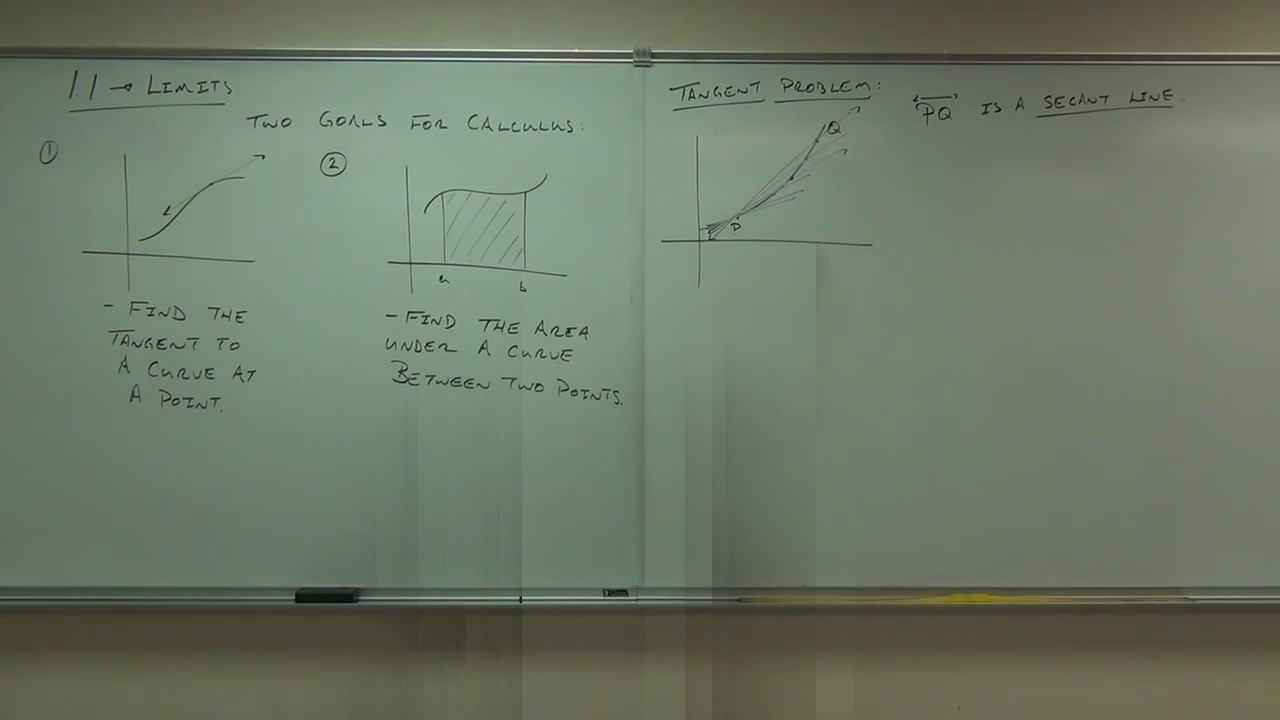 1.1 → LIMITS
TWO GOALS FOR CALCULUS:
①
②
a b
- FIND THE
TANGENT TO
A CURVE AT
A POINT.
- FIND THE AREA
UNDER A CURVE
BETWEEN TWO POINTS.
TANGENT PROBLEM:
Q
P
PQ IS A SECANT LINE.